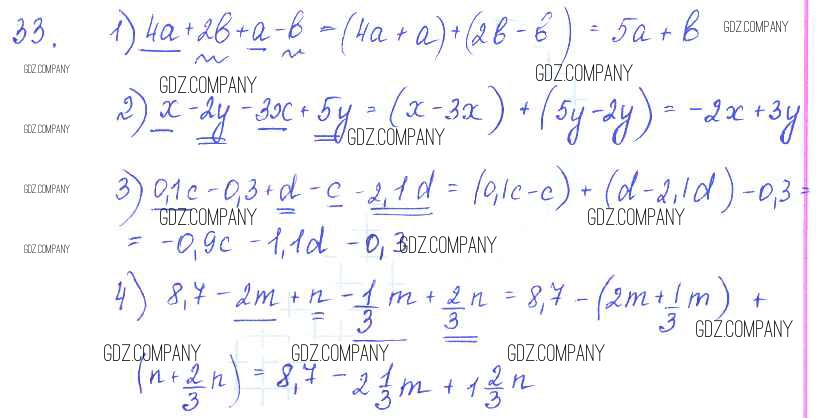 33. 1) 4a + 2b + a - b = (4a + a) + (2b - b) = 5a + b GDZ.COMPANY
GDZ.COMPANY GDZ.COMPANY GDZ.COMPANY
2) x - 2y - 3x + 5y = (x - 3x) + (5y - 2y) = -2x + 3y
GDZ.COMPANY GDZ.COMPANY
3) 0,1c - 0,3 + d - c - 2,1d = (0,1c - c) + (d - 2,1d) - 0,3 =
GDZ.COMPANY GDZ.COMPANY GDZ.COMPANY
= -0,9c - 1,1d - 0,3
GDZ.COMPANY GDZ.COMPANY
4) 8,7 - 2m + n - 1/3 m + 2/3 n = 8,7 - (2m + 1/3 m) +
GDZ.COMPANY
GDZ.COMPANY GDZ.COMPANY GDZ.COMPANY
(n + 2/3 n) = 8,7 - 2 1/3 m + 1 2/3 n